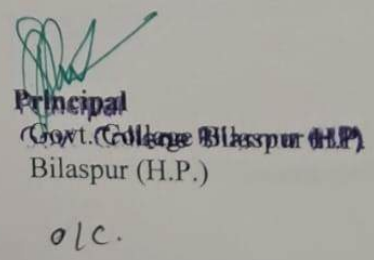 Principal
Govt. College Bilaspur (H.P)
Bilaspur (H.P.)
o/c.